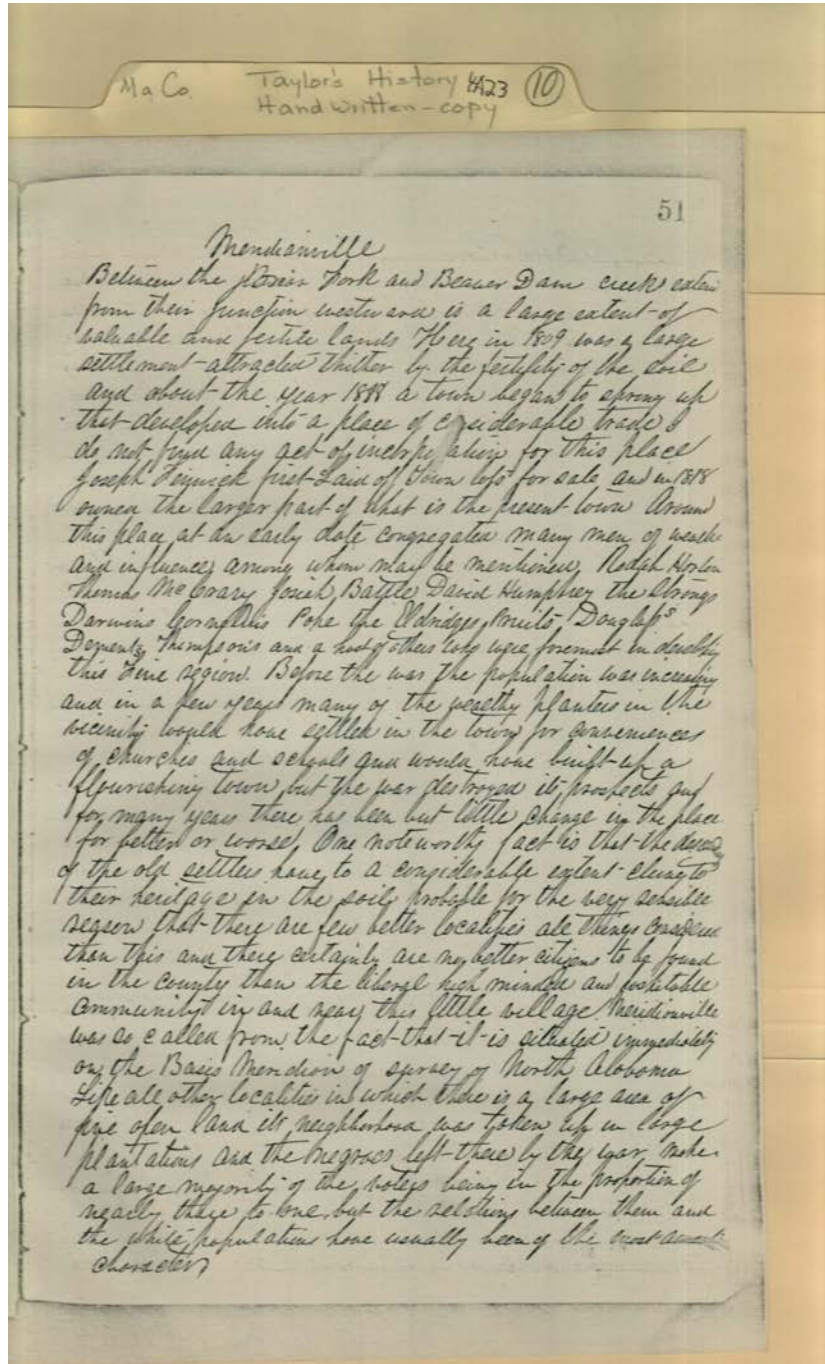 Ma Co. Taylor's History 4A23 10
Handwritten - copy
51
Meridianville
Between the Fork and Beaver Dam creek exten
from their junction westward is a large extent of
valuable and fertile lands Here in 1809 was a large
settlement attracted thither by the fertility of the soil
and about the year a town began to spring up
that developed into a place of considerable trade I
do not find any act of incorporation for this place
Joseph Fenwick first Laid of Town lots for sale and in 1818
owned the larger part of what is the present town Around
this place at an early date congregated many men of wealth
and influence, among whom may be mentioned, Rodah Horton
Thomas McCrary Josiah Battle David Humphrey the Strongs
Darwins Cornelius Pope the Eldridges, Pruits, Douglass
Dements, Thompsons and a host of others who were foremost in develop
this Fine region. Before the war the population was increasing
and in a few years many of the wealthy planters in the
vicinity would have settled in the town for conveniences
of churches and schools and would have built up a
flourishing town, but the war destroyed its prospects and
for many years there has been but little change in the place
for better or worse, One noteworthy fact is that the
of the old settlers have to a considerable extent clung to
their heritage in the soil, probable for the very sensible
reason that there are few better localities all things considered
than this and there certainly are no better citizens to be found
in the county than the liberal high minded and hospitable
community in and near this little village. Meridianville
was so called from the fact that it is situated immediately
on the Basis Meridian of survey of North Alabama
Like all other localities in which there is a large area of
fine open land its neighborhood was taken up in large
plantations and the negroes left there by the war, make
a large majority of the voters being in the proportion of
nearly three to one, but the relations between them and
the white populations have usually been of the most
character